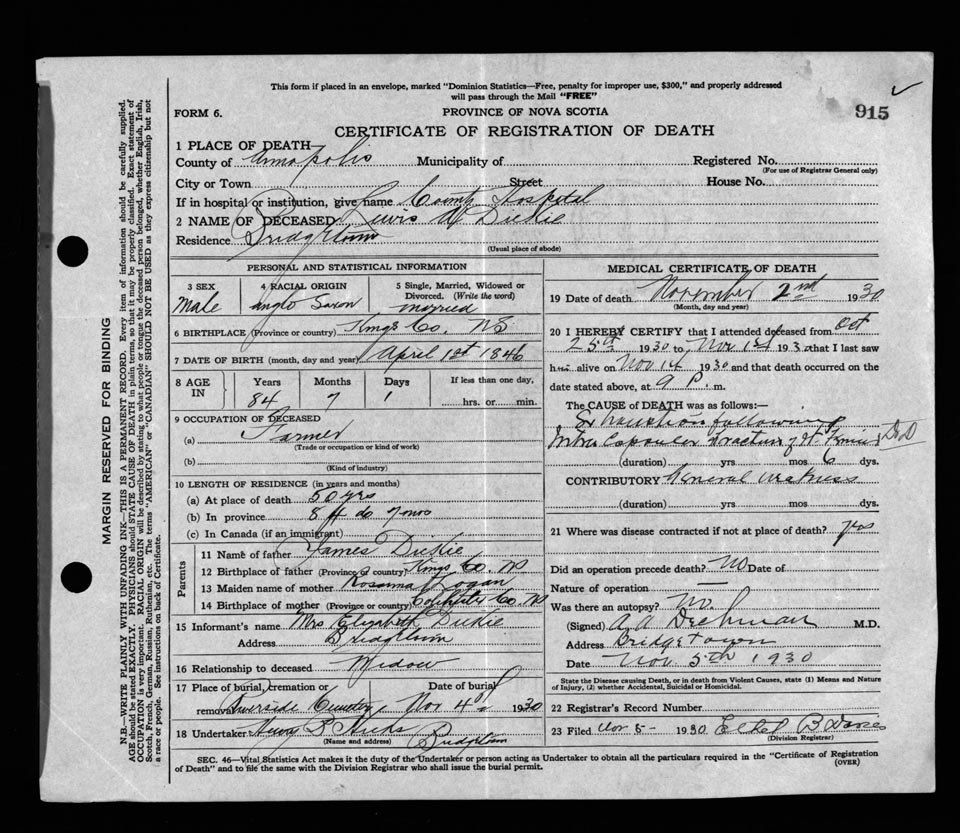 This form if placed in an envelope, marked "Dominion Statistics—Free, penalty for improper use, $300," and properly addressed
will pass through the Mail "FREE"
FORM 6. PROVINCE OF NOVA SCOTIA 915
CERTIFICATE OF REGISTRATION OF DEATH
1 PLACE OF DEATH
County of Annapolis Municipality of Registered No.
(For use of Registrar General only)
City or Town Street House No.
If in hospital or institution, give name County Hospital
2 NAME OF DECEASED Lewis W Dickie
Residence Bridgetown
(Usual place of abode)
PERSONAL AND STATISTICAL INFORMATION
3 SEX 4 RACIAL ORIGIN 5 Single, Married, Widowed or
Divorced. (Write the word)
Male Anglo Saxon married
6 BIRTHPLACE (Province or country) Kings Co. NS
7 DATE OF BIRTH (month, day and year) April 1st 1846
8 AGE IN Years Months Days If less than one day,
84 7 1 hrs. or min.
9 OCCUPATION OF DECEASED
(a) Farmer
(Trade or occupation or kind of work)
(b)
(Kind of industry)
10 LENGTH OF RESIDENCE (in years and months)
(a) At place of death 50 yrs
(b) In province 84 do 7 mos
(c) In Canada (if an immigrant)
Parents
11 Name of father James Dickie
12 Birthplace of father (Province or country) Kings Co. NS
13 Maiden name of mother Rosanna Logan
14 Birthplace of mother (Province or country) Colchester Co. NS
15 Informant's name Mrs Elizabeth Dickie
Address Bridgetown
16 Relationship to deceased Widow
17 Place of burial, cremation or Date of burial
removal Riverside Cemetery Nov 4th 1930
18 Undertaker Henry B Hicks Bridgetown
(Name and address)
MEDICAL CERTIFICATE OF DEATH
19 Date of death November 2nd 1930
(Month, day and year)
20 I HEREBY CERTIFY that I attended deceased from Oct
25th 1930 to Nov 1st 193 that I last saw
h alive on Nov 1st 1930 and that death occurred on the
date stated above, at 9 P. m.
The CAUSE of DEATH was as follows:—
Exhaustion following
Intra Capsular Fracture of Femur
(duration) yrs mos 6 dys.
CONTRIBUTORY General Weakness
(duration) yrs mos dys.
21 Where was disease contracted if not at place of death? yes
Did an operation precede death? No Date of
Nature of operation —
Was there an autopsy? No.
(Signed) A A Dechman M.D.
Address Bridgetown
Date Nov 5th 1930
State the Disease causing Death, or in death from Violent Causes, state (1) Means and Nature
of Injury, (2) whether Accidental, Suicidal or Homicidal.
22 Registrar's Record Number
23 Filed Nov 5- 1930 Ethel B
(Division Registrar)
SEC. 46—Vital Statistics Act makes it the duty of the Undertaker or person acting as Undertaker to obtain all the particulars required in the "Certificate of Registration
of Death" and to file the same with the Division Registrar who shall issue the burial permit. (OVER)
MARGIN RESERVED FOR BINDING
N.B.—WRITE PLAINLY WITH UNFADING INK—THIS IS A PERMANENT RECORD. Every item of information should be carefully supplied.
AGE should be stated EXACTLY. PHYSICIANS should STATE CAUSE OF DEATH in plain terms, so that it may be properly classified. Exact statement of
OCCUPATION is very important. RACIAL ORIGIN will be described by stating to what people or tongue the deceased person belonged, whether English, Irish,
Scotch, French, German, Russian, Ruthenian, etc. The terms "AMERICAN" or "CANADIAN" SHOULD NOT BE USED as they express citizenship but not
a race or people. See instructions on back of Certificate.